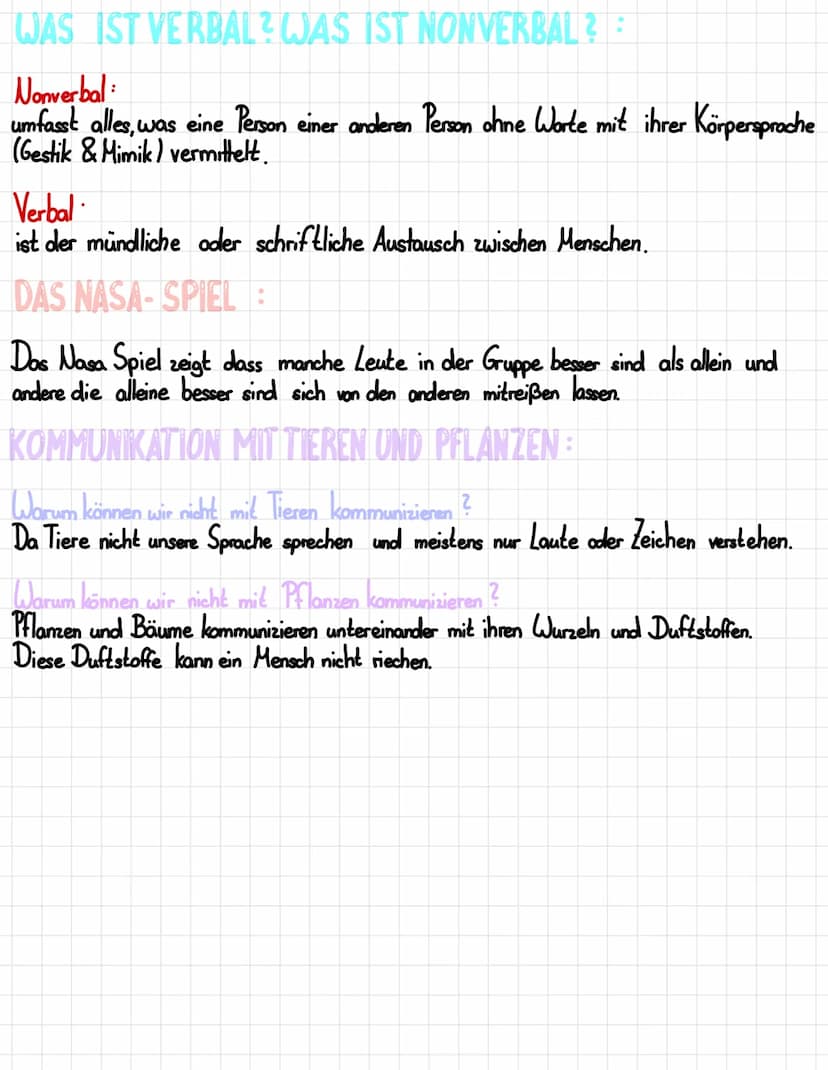 WAS IST VERBAL? WAS IST NONVERBAL? :
Nonverbal:
umfasst alles, was eine Person einer anderen Person ohne Worte mit ihrer Körpersprache
(Gestik & Mimik) vermittelt.
Verbal:
ist der mündliche oder schriftliche Austausch zwischen Menschen.
DAS NASA-SPIEL :
Das Nasa Spiel zeigt dass manche Leute in der Gruppe besser sind als allein und
andere die alleine besser sind sich von den anderen mitreißen lassen.
KOMMUNIKATION MIT TIEREN UND PFLANZEN:
Warum können wir nicht mit Tieren kommunizieren?
Da Tiere nicht unsere Sprache sprechen und meistens nur Laute oder Zeichen verstehen.
Warum können wir nicht mit Pflanzen kommunizieren?
Pflanzen und Bäume kommunizieren untereinander mit ihren Wurzeln und Duftstoffen.
Diese Duftstoffe kann ein Mensch nicht riechen.